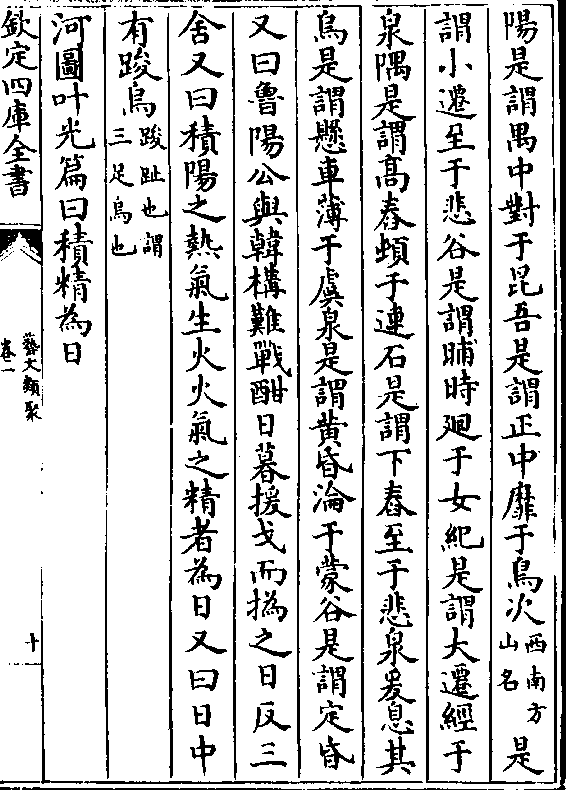 陽是謂禺中對于昆吾是謂正中靡于鳥次西南方山名是
謂小遷至于悲谷是謂晡時廻于女紀是謂大遷經于
泉隅是謂高舂頓于連石是謂下舂至于悲泉爰息其
馬是謂懸車薄于虞泉是謂黃昏淪于蒙谷是謂定昏
又曰魯陽公與韓構難戰酣日暮援戈而撝之日反三
舍又曰積陽之熱氣生火火氣之精者為日又曰日中
有踆烏踆趾也謂三足烏也
河圖叶光篇曰積精為日
欽定四庫全書
藝文類聚
卷一
十